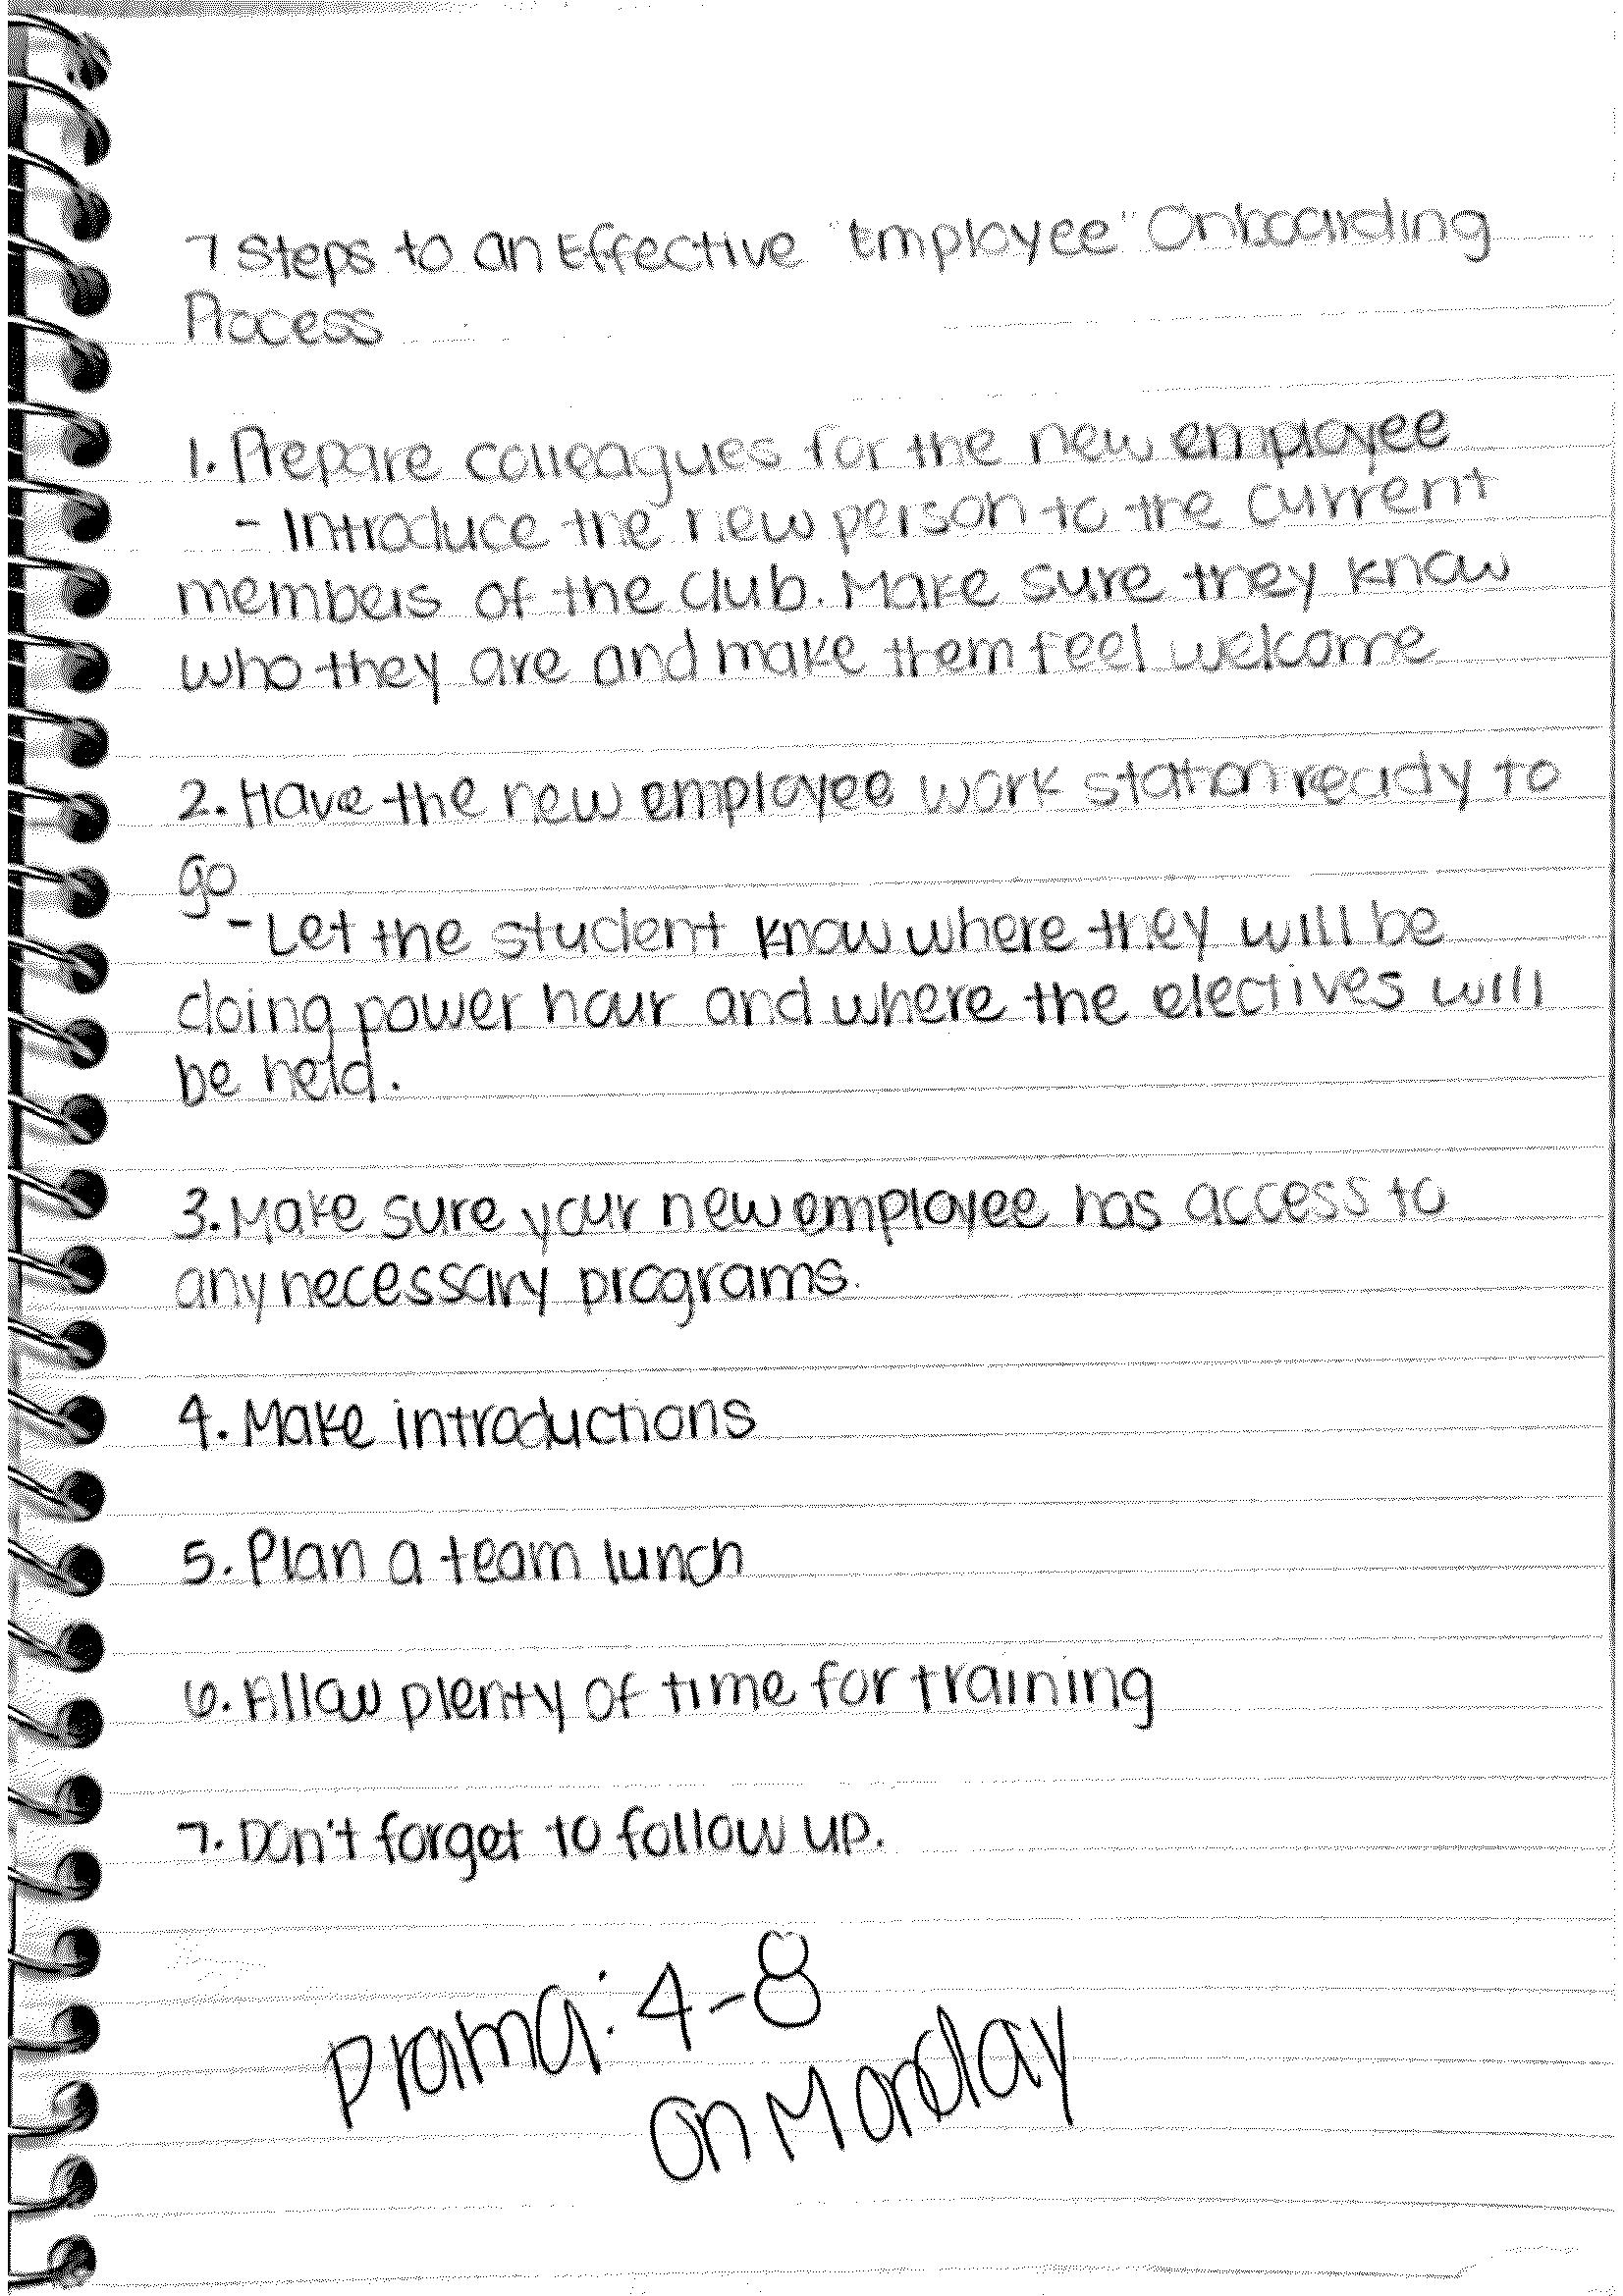 7 Steps to an Effective "Employee" Onboarding
Process
1. Prepare colleagues for the new employee
- Introduce the new person to the current
members of the club. Make sure they know
who they are and make them feel welcome
2. Have the new employee work station ready to
go
- Let the student know where they will be
doing power hour and where the electives will
be held.
3. Make sure your new employee has access to
any necessary programs.
4. Make introductions
5. Plan a team lunch
6. Allow plenty of time for training
7. Don't forget to follow up.
Drama: 4-8
on Monday